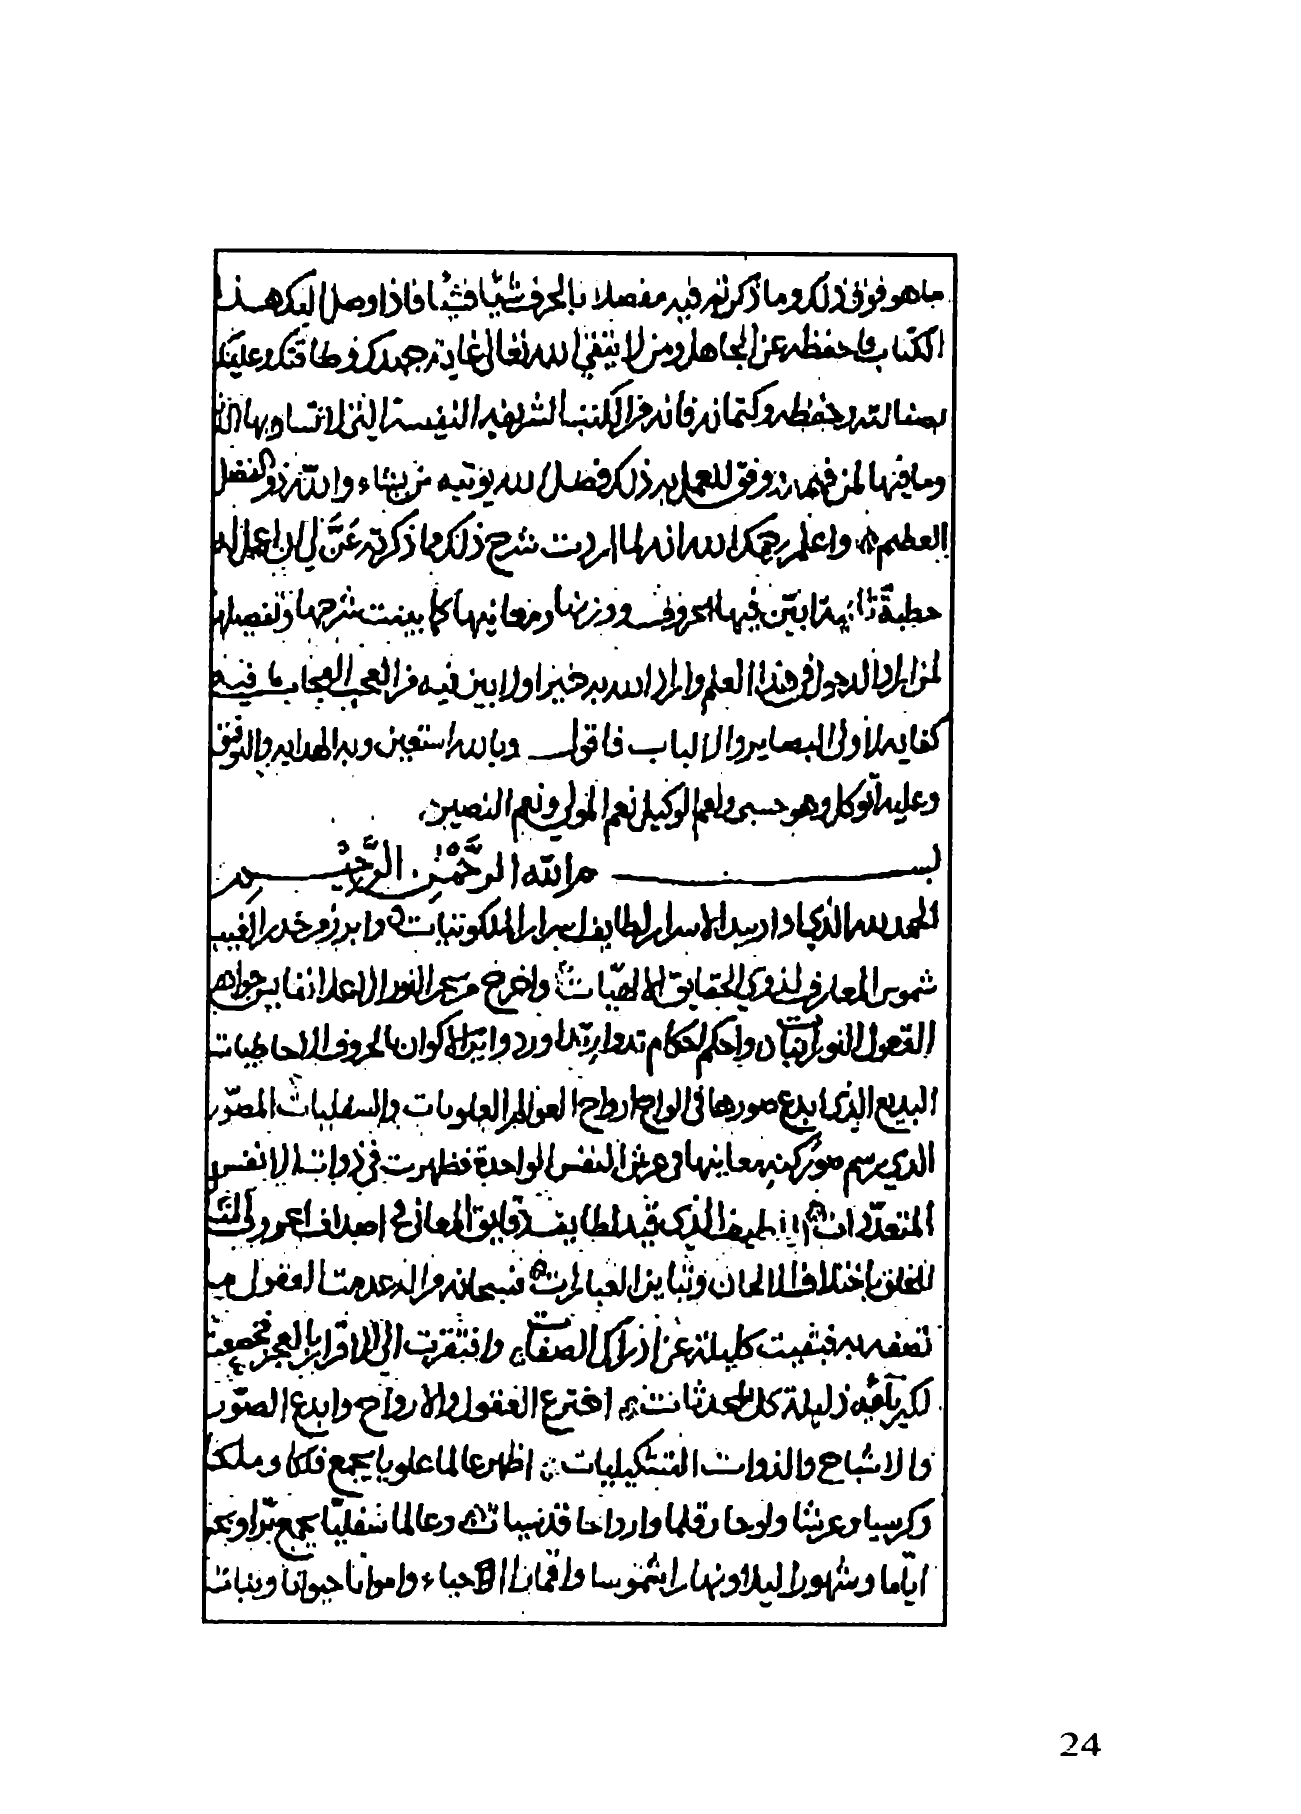 ما هو فوق ذلك وما ذكرته فيه مفصلا بالحرف شيئا فشيئا فاذا وصل اليك هذا
الكتاب فاحفظه عن الجاهل ومن لا يتقي الله تعالى غاية جهدك وطاقتك وعليك
بصيانته وحفظه وكتمانه فانه من الكتب الشريفه النفيسة التي لا تساويها
وما فيها لمن فهمه ووفق للعمل به ذلك فضل الله يوتيه من يشاء والله ذو الفضل
العظيم واعلم رحمك الله انه لما اردت شرح ذلك وما ذكرته عَنَّ لي ان اعمل له
خطبة ثانية ابين فيها الحروف ووزنها ومعانيها كما بينت شرحها وتفصيلها
لمن اراد الدخول في هذا العلم واراد الله به خيرا ولا بين فيه من العجب العجاب ما فيه
كفايه لاولى البصاير والالباب فاقول وبالله استعين وبه الهدايه والتوفيق
وعليه اتوكل وهو حسبى ونعم الوكيل نعم المولى ونعم النصير
بسم الله الرَّحْمٰن الرَّحِيْم
الحمد لله الذي ادار بيد الاسرار لطايف اسرار الملكوتيات وابرز من خدر الغيب
شموس المعارف لذوي الحقايق الالاهيّات واخرج من بحر النور الاعلا نفايس جواهر
الفصول النورانيات واحكم احكام تدوايرتها ورد دواير الاكوان بالحروف الاحاطيات
البديع الذي ابدع صورها فى الواح ارواح العوالم العلويات والسفليات المصوّر
الذي رسم صور كنه معاينها فى عرش النفس الواحدة فظهرت فى ذوات الانفس
المتعدّدات اللطيف الذى قيد لطايف دقايق المعاني في اصداف
للخلق باختلاف الالحان وتباين العبارات فسبحانه من اله عدمت العقول ما
تصفه به فبقيت كليلة عن ادراك الصفات وافتقرت الى الاقرار بالعجز فخضعت
لكبريآئه ذليلة كل المحدثات اخترع العقول والارواح وابدع الصوّر
والاشباح والذوات التشكيليات اظهر عالما علويا يجمع فلكا وملكا
وكرسيا وعرشا ولوحا وقلما وارواحا قدسيات وعالما سفليّا يجمع برّا وبحرا
ايّاما وشهورا ليلا ونهارا شموسا واقمارا احياء وامواتا حيوانا ونبات
24